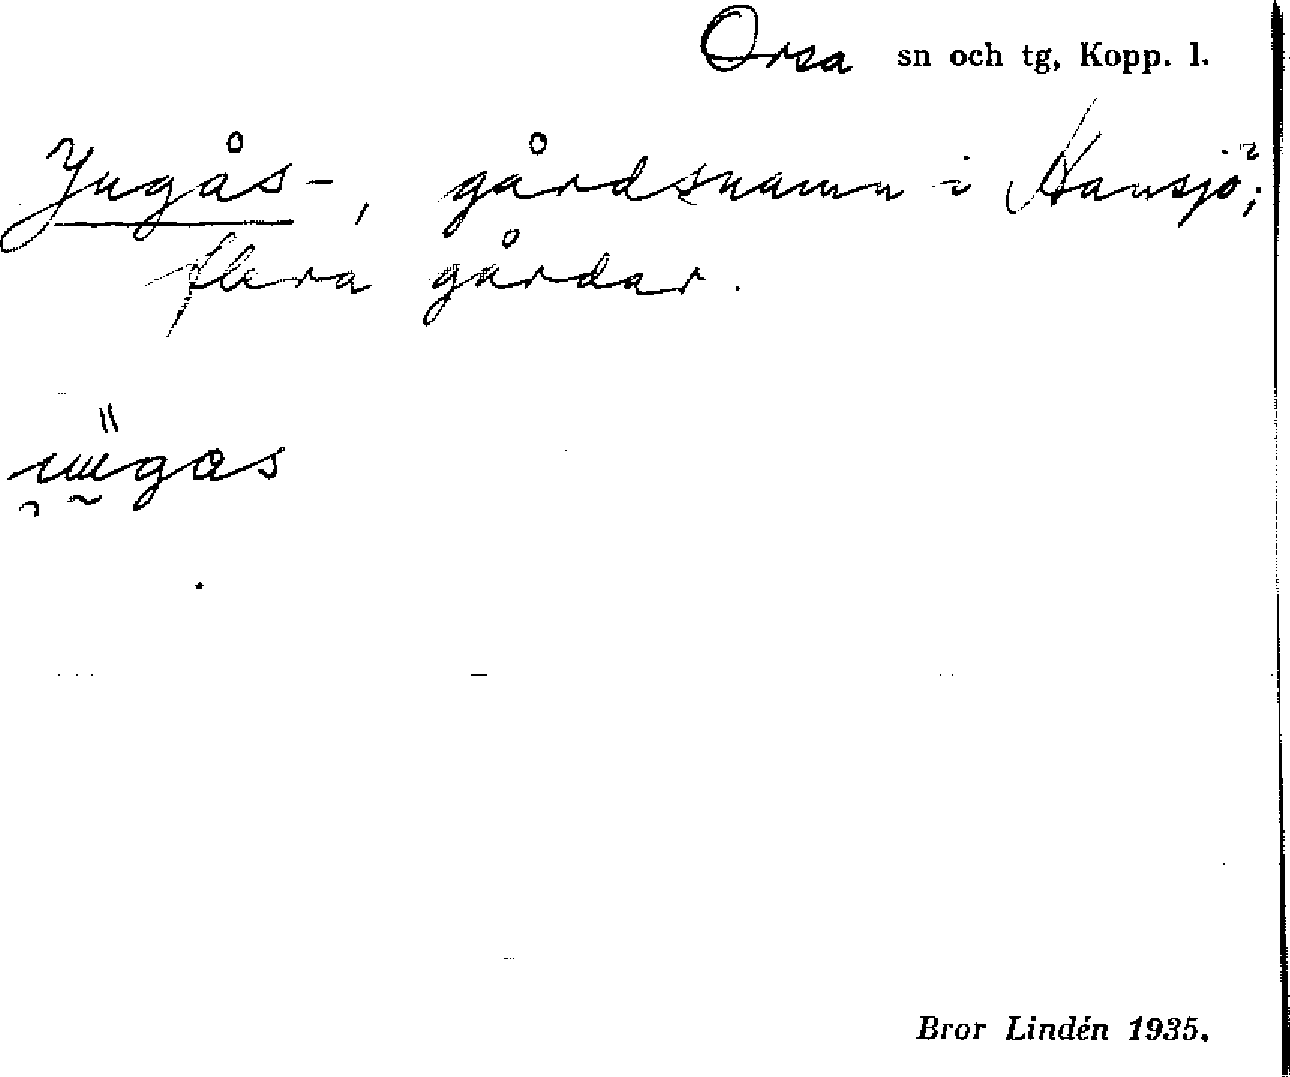 Orsa sn och tg, Kopp. l.
Jugås-, gårdsnamn i Hansjö;
flera gårdar.
Bror Lindén 1935.